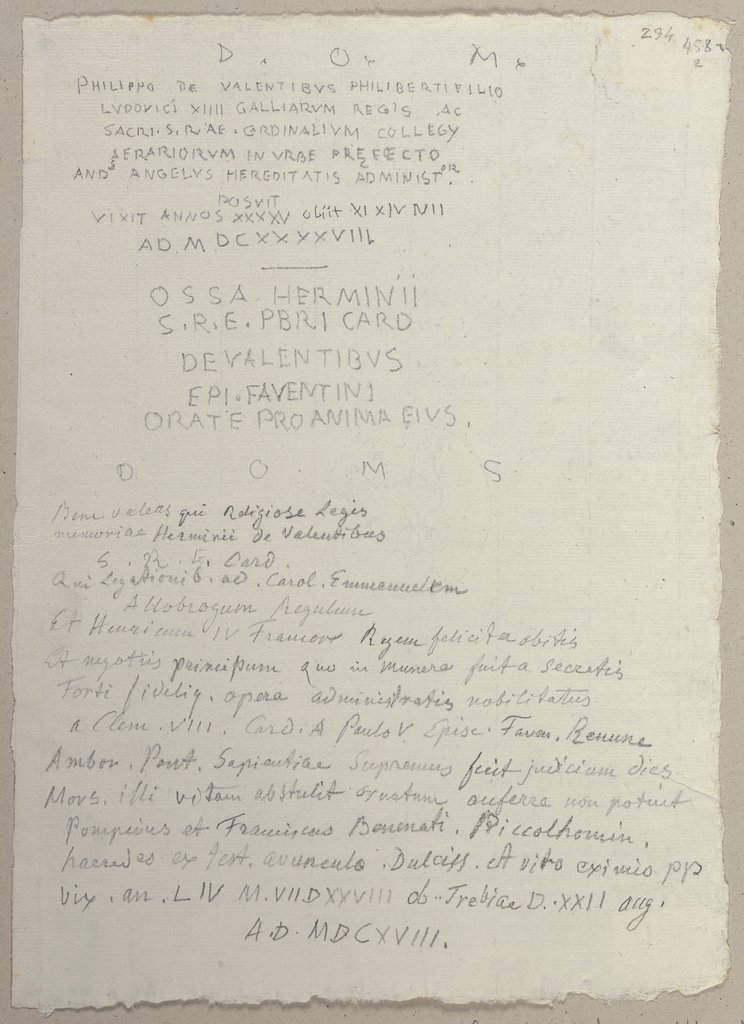 234 458
2
D. O. M.
PHILIPPO DE VALENTIBVS PHILIBERTI FILIO
LVDOVICI XIIII GALLIARVM REGIS AC
SACRI. S. R. AE. CORDINALIVM COLLEGY
AERARIORVM IN VRBE PREFECTO
ANDS ANGELVS HEREDITATIS ADMINISTOR.
POSVIT
VIXIT ANNOS XXXXV Obiit XI XIV
AD. M DCXXXXVIII
OSSA HERMINII
S. R. E. PBRI CARD
DE VALENTIBVS
EPI. FAVENTINI
ORATE PRO ANIMA EIVS.
D O M S
Bene valeas qui Religiose Legis
memoriae Herminii de Valentibus
S. R. E. Card.
Qui Legationib. ad. Carol. Emmanuelem
Allobrogum Regulum
Et Henricum IV Francor Regem feliciter obitis
Et negotiis principum quo in munere fuit a Secretis
Forti fideliq. opera administratis nobilitatus
a Clem. VIII. Card. A Paulo V Episc. Faven.
Ambor. Pont. Sapientiae Supremus fecit judicium dies
Mors. illi vitam abstulit ornatum auferre non potuit
Pompeius et Franciscus Benenati. Piccolhomin.
haeredes ex test. avunculo. Dulciss. et viro eximio pp
Vix. an. LIV M. VII D XXVIII ob. Trebiae D. XXII aug.
A.D. MDCXVIII.